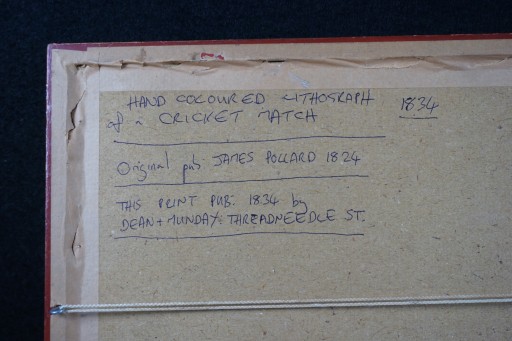 HAND COLOURED LITHOGRAPH 1834
of a CRICKET MATCH
Original pub JAMES POLLARD 1824
THIS PRINT PUB. 1834 by
DEAN + MUNDAY: THREADNEEDLE ST.